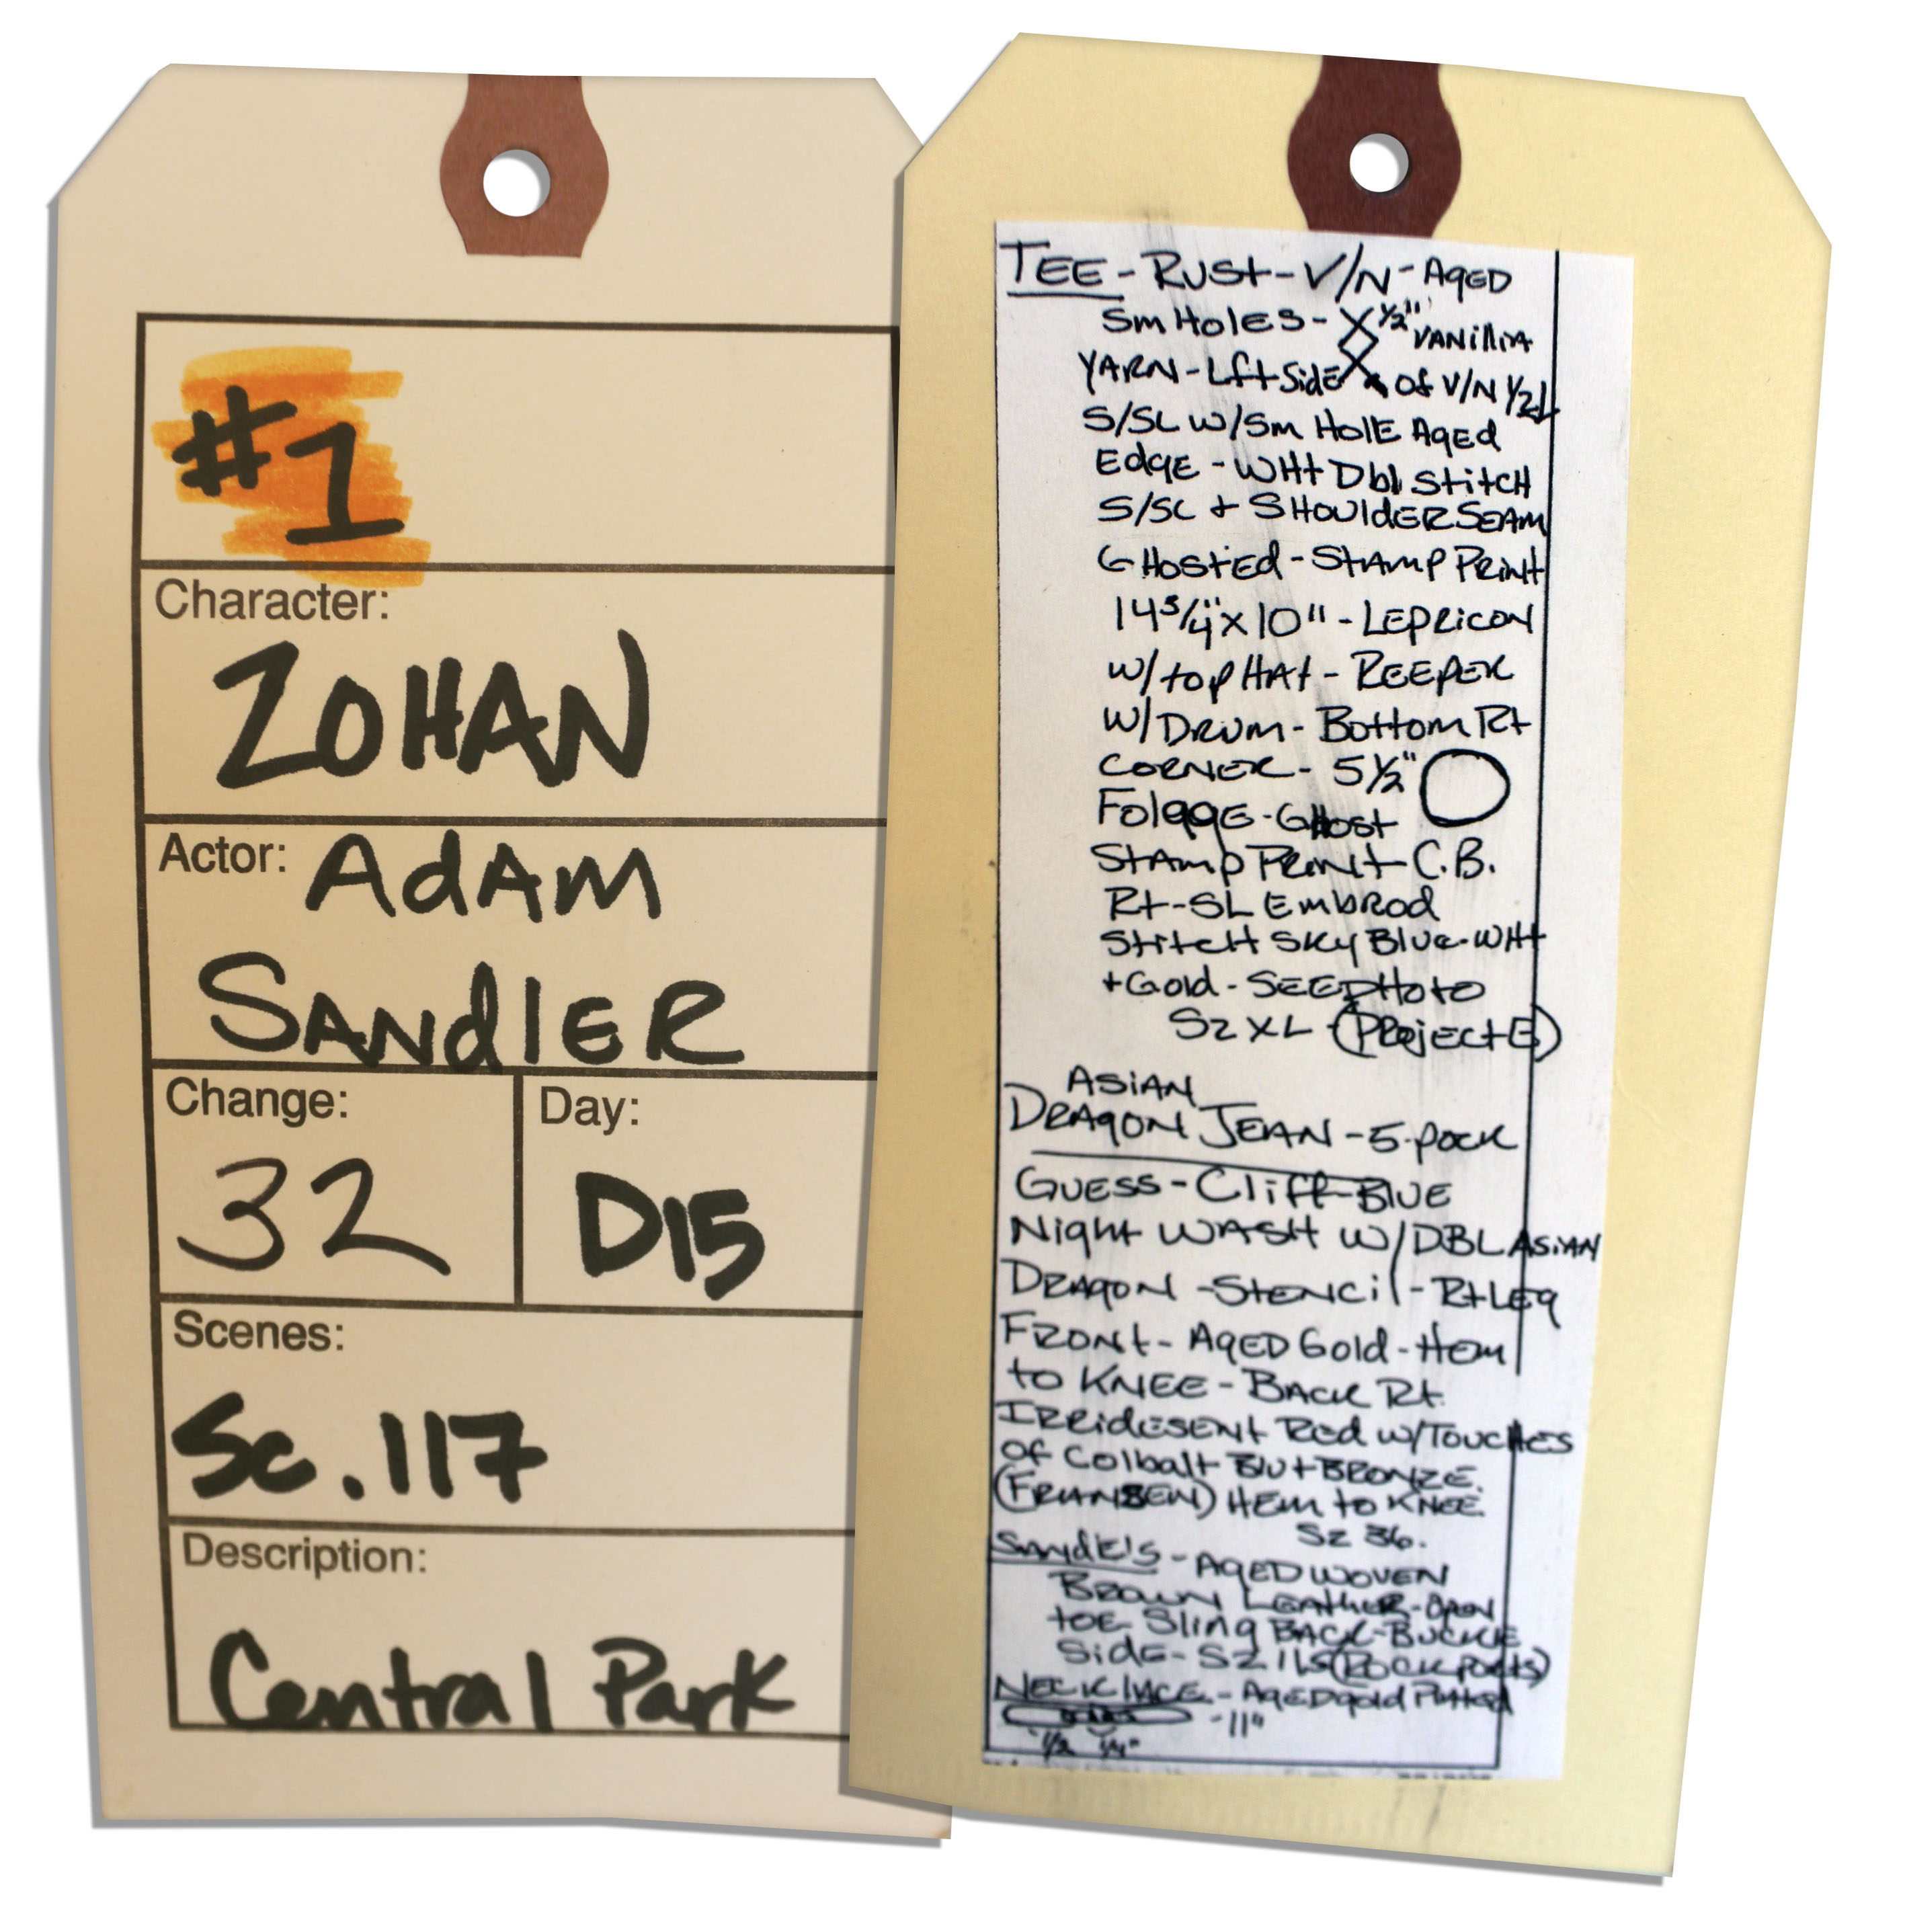 #1
Character:
ZOHAN
Actor: AdAM
SANdlER
Change:
32
Day:
D15
Scenes:
Sc.117
Description:
Central Park
TEE - RUSt - V/N - AgED
Sm HolES - 1/2" VANillIA
YARN - Lft SidE of V/N 1/2
S/SL W/Sm HolE AgEd
EdgE - WHt Dbl StitcH
S/SL + SHOUldER SEAM
GHostEd - StAmp PRiNt
14 3/4" x 10" - LEPRicON
W/top HAt - REEPER
W/DRUm - Bottom Rt
CORNER - 5 1/2"
FolggE - GHost
StAmp PRiNt C.B.
Rt - SL EmbROd
StitcH SKy BluE - WHt
+ Gold - SEE PHoto
SZ XL - (PROjEctE)
ASiAN
DRAgON JEAN - 5-pock
GUESS - Cliff - BlUE
NigHt WASH W/DBL ASiAN
DRAgON - StENcil - Rt LEg
FRONt - AgED Gold - HEm
to KNEE - BAck Rt.
IRRidESENt REd W/ToUcHES
of Colbalt Blu + BRONZE.
HEm to KNEE.
SZ 36.
SANdElS - AgED WOVEN
BROWN LEAtHER - OpEN
toE SliNg BAck - BUcklE
SidE - SZ (ROckpoRtS)
NEcklAcE - AgED gold PlAtEd
- 11"
1/2 1/4"